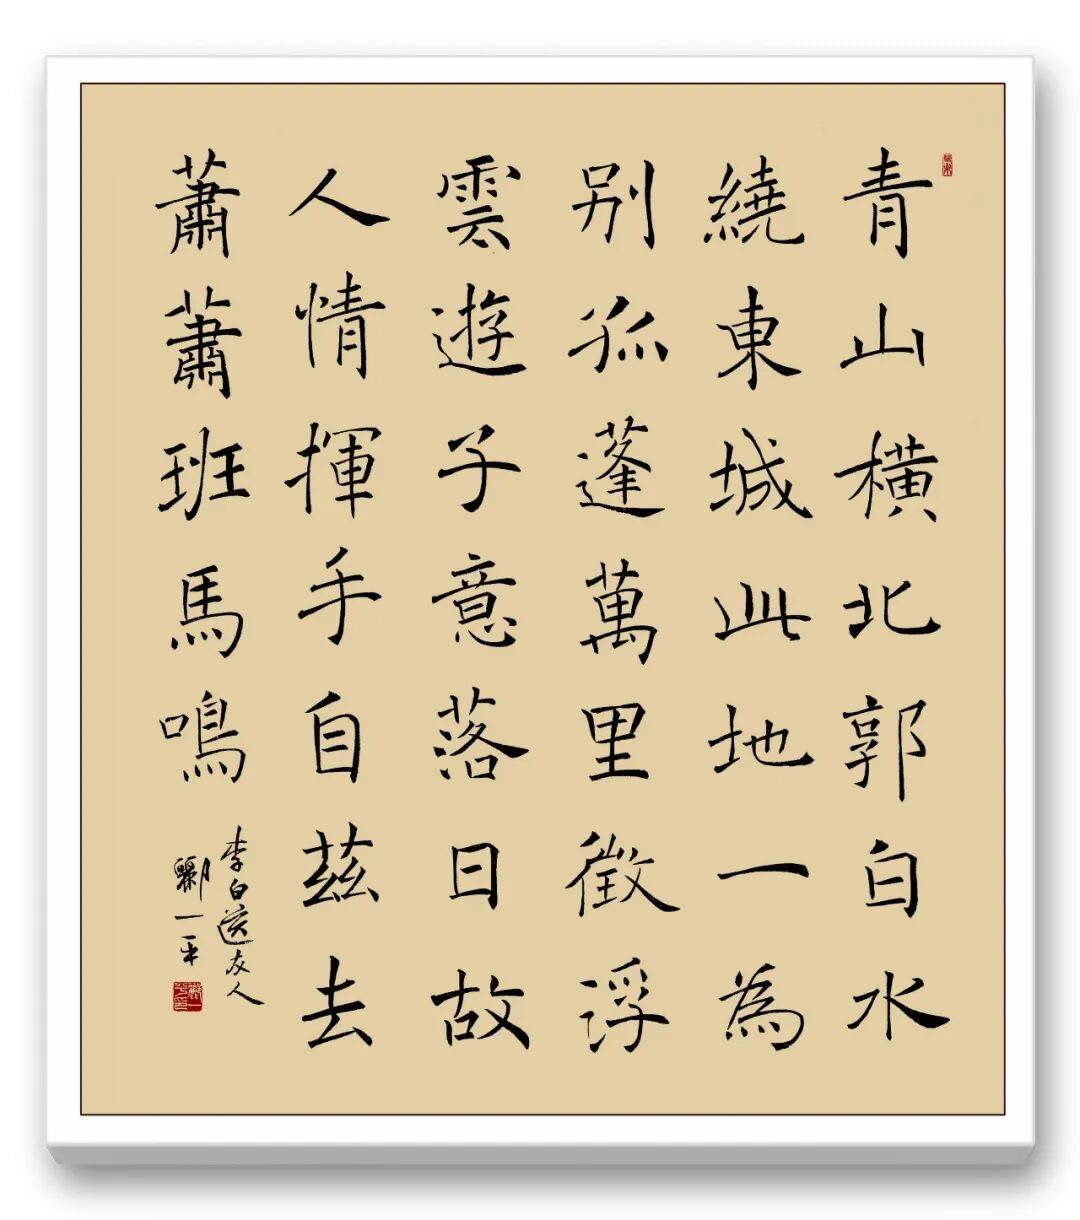 青山橫北郭白水
繞東城此地一為
别孤蓬萬里徵浮
雲遊子意落日故
人情揮手自茲去
蕭蕭班馬鳴
李白送友人
一平